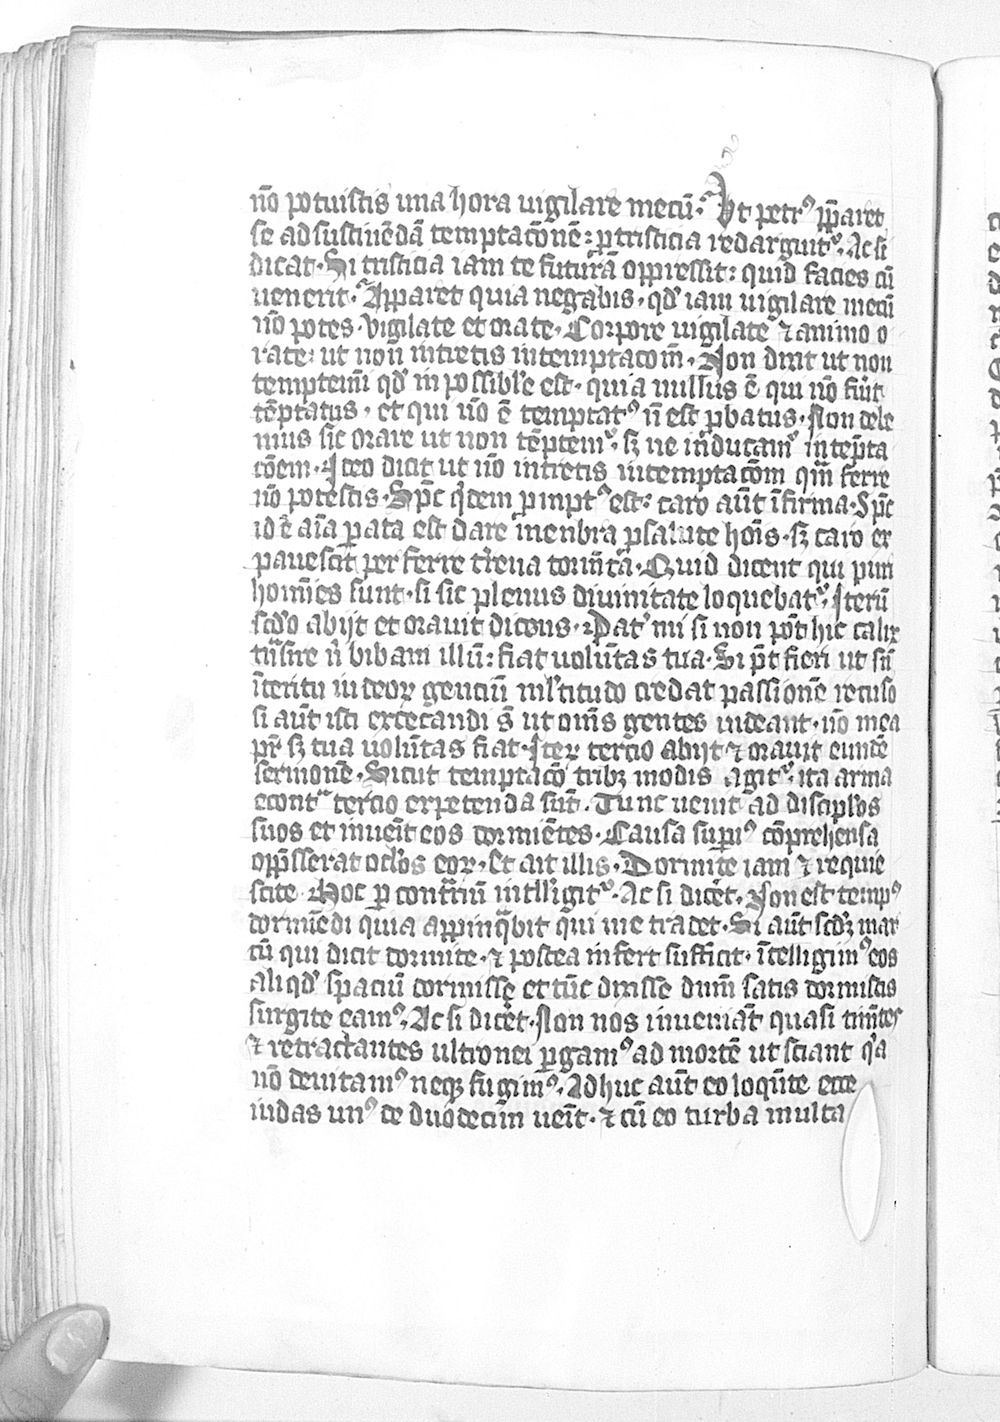 nō potuistis una hora uigilare mecū. Vt petrꝰ ꝓpararet
se ad sustinēdā temptacōnē: ꝑ tristicia redarguitᷣ. Ac si
dicat. Si tristicia iam te futurā oppressit: quid facies cū
uenerit. Apparet quia negabis. qđ iam uigilare mecū
nō potes. Vigilate et orate. Corpore uigilate ⁊ animo o
rate: ut non intretis in temptacōm̄. Non dixit ut non
temptem̄i qđ in possibłe est. quia nullus ē qui nō fūit
tēptatus. et qui nō ē temptatꝰ n̄ est ꝓbatus. Non debe
mus sic orare ut non tēptemᷣ. sꝫ ne inducamᷣ in tēpta
cōem. Ideo dicit ut nō intretis in temptacōm qm̄ ferre
nō potestis. Sp̄c q̇dem ꝓmptꝰ est: caro aūt īfirma. Sp̄c
id ē aīa parata est dare menbra ꝓ salute hoīs. sꝫ caro ex
pauescit perferre t̄rena torm̄ta. Quid dicent qui puri
hom̄ies sunt. si sic plenus diuinitate loquebatᷣ. Iterū
scđo abijt et orauit dicens. Patᷣ mi si non pōt hic calix
tn̄sire n̄ bibam illū: fiat uolūtas tua. Si pōt fieri ut sn̄
īteritu iudeoꝝ genciū ml̄titudo credat passionē recuso
si aūt isti excecandi s̄ ut om̄s gentes uideant. nō mea
pr̄ sꝫ tua uolūtas fiat. Iteꝝ tercio abijt ⁊ orauit eundē
sermonē. Sicut temptacō tribꝫ modis agitᷣ. ita arma
econtᵃ tercio expetenda sūt. Tunc uenit ad discipłos
suos et inueīt eos dormiētes. Causa supiꝰ cōprehensa
opp̄sserat ocłos eoꝝ. Et ait illis. Dormite iam ⁊ requie
scite. Hoc ꝑ contrariū intłligitᷣ. Ac si dicēt. Non est tempꝰ
dormiēdi quia appinq̄bit qui me tradet. Si aūt scđꝫ mar
cū qui dicit dormite. ⁊ postea infert sufficit. ītelligimꝰ eos
aliqđ spaciū dormisse et tūc dixisse dum̄ satis dormistis
surgite eamꝰ. Ac si dicēt. Non nos inueniāt quasi timētes
⁊ retractantes ultronei ꝑgamꝰ ad mortē ut sciant q̇a
nō deuitamꝰ neqꝫ fugimꝰ. Adhuc aūt eo loquēte ecce
iudas unꝰ de duodecim ueīt. ⁊ cū eo turba multa